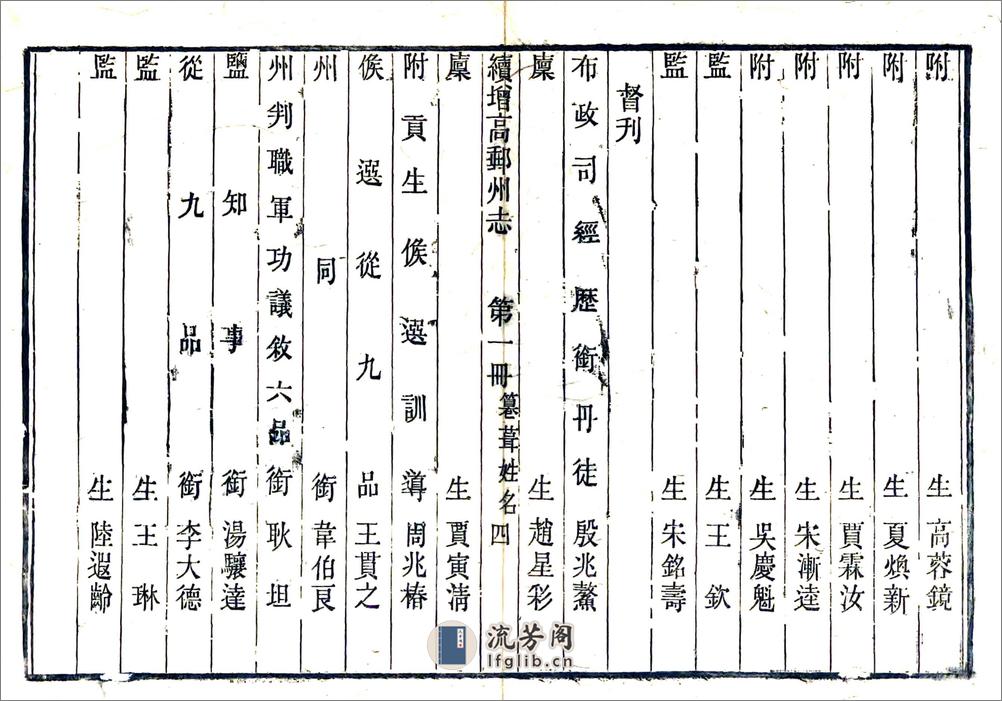 附生高蓉鏡
附生夏煥新
附生賈霖汝
附生宋漸逵
附生吳慶魁
監生王欽
監生宋銘壽
督刋
布政司經歷銜丹徒殷兆鰲
廩生趙星彩
續增高郵州志 第一冊 纂葺姓名 四
廩生賈寅清
附貢生候選訓導周兆椿
候選從九品王貫之
州同銜韋伯良
州判職軍功議敘六品銜耿坦
鹽知事銜湯驤逵
從九品銜李大德
監生王琳
監生陸遐齡
流芳阁
lfglib.cn